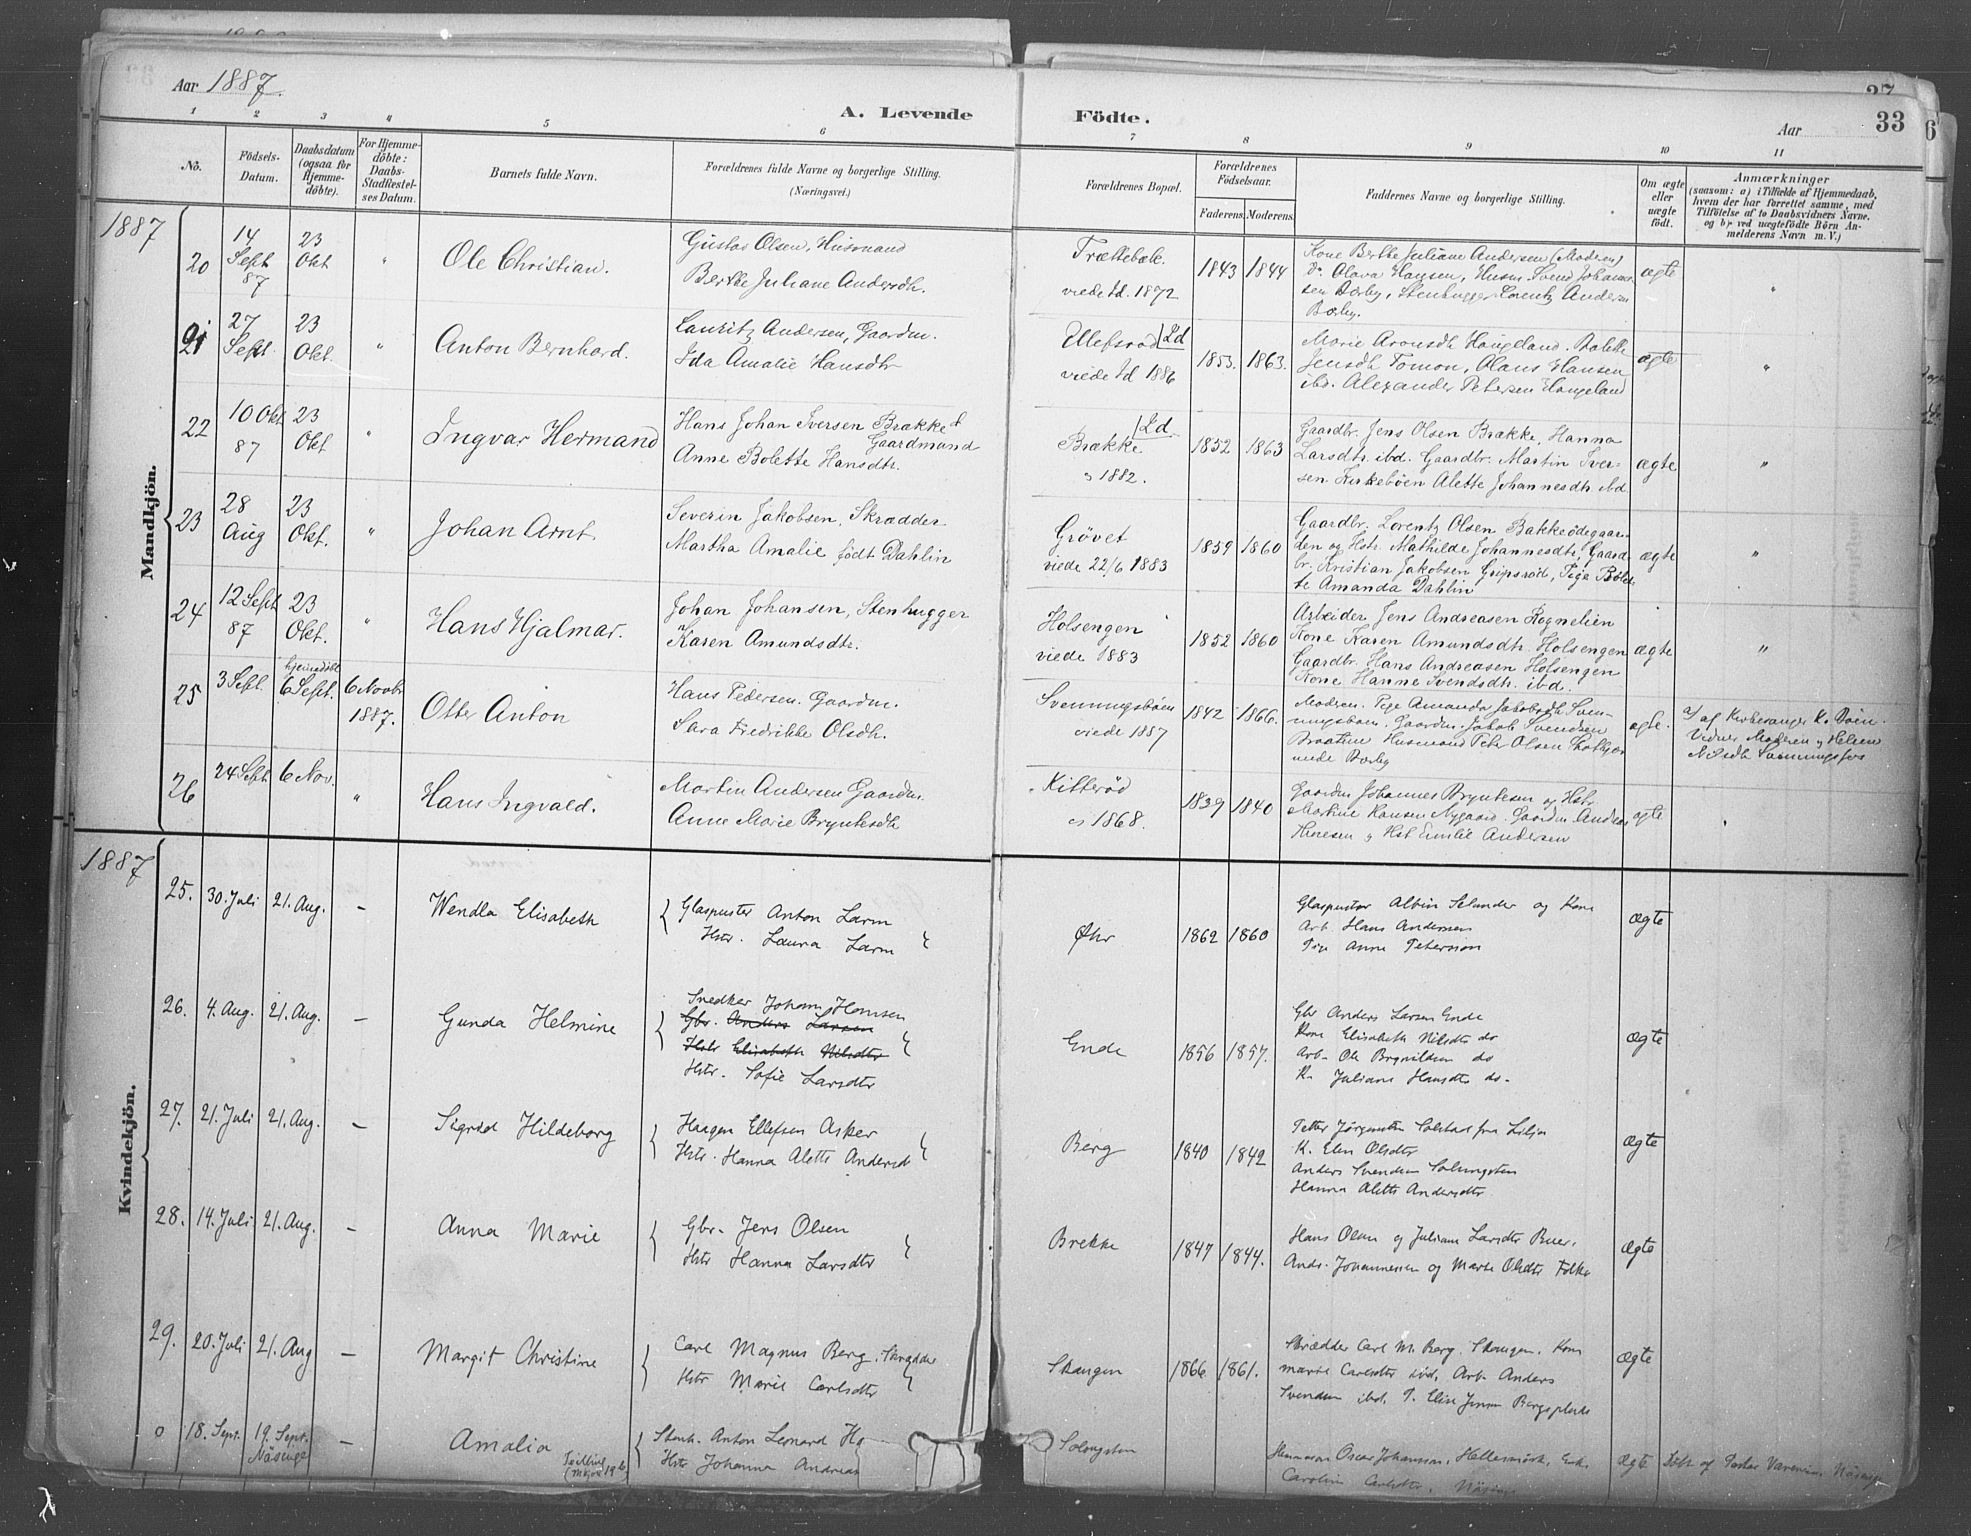 Aar 1887.
A. Levende Födte.
Aar 33
1 2 3 4 5 6 7 8 9 10 11
No.
Födsels-Datum.
Daabsdatum (ogsaa for Hjemmedöbte).
For Hjemmedöbte: Daabs-Stadfæstelses Datum.
Barnets fulde Navn.
Forældrenes fulde Navne og borgerlige Stilling.
(Næringsvei.)
Forældrenes Bopæl.
Forældrenes Födselsaar.
Faderens. Moderens.
Faddernes Navne og borgerlige Stilling.
Om ægte eller uægte födt.
Anmærkninger
(saasom: a) i Tilfælde af Hjemmedaab, hvem der har forrettet samme, med Tilföielse af to Daabsvidners Navne, og b) ved uægtefödte Börn Anmelderens Navn m. V.)
1887
Mandkjön.
20 14 Sept 87 23 Okt " Ole Christian. Gustav Olsen, Husmand
Berthe Juliane Andersdh.
Trættebæk.
viede td. 1872
1843 1844 Kone Berthe Juliane Andersen (Moderen)
Olava Hansen, Husm. Svend Johannesen Børby, Stenhugger Lorentz Andersen
Børby.
ægte "
21 27 Sept. 23 Okt. " Anton Bernhard. Lauritz Andersen, Gaardm.
Ida Amalie Hansdtr
Ellefsrød Ld
viede td 1886
1853. 1863. Marie Aronsdh Haugeland. Bolette
Jensdh Tomon, Olaus Hansen
ibd. Alexander Petersen Haugeland
ægte "
22 10 Okt 87 23 Okt " Ingvar Hermand Hans Johan Iversen Brække
Gaardmand
Anne Bolette Hansdtr.
Ld
Brække
" 1882.
1852 1863 Gaardbr. Jens Olsen Brække, Hanna
Larsdtr. ibd. Gaardbr. Martin Iversen Kirkebøen Alette Johannesdtr. ibd
ægte "
23 28 Aug 23 Okt. " Johan Arnt. Severin Jakobsen, Skrædder
Martha Amalie født Dahlin
Grövet
viede 22/6 1883
1859 1860 Gaardbr. Lorentz Olsen Bakkeödegaarden og Hstr. Mathilde Johannesdtr, Gaardbr. Kristian Jakobsen Gripsröd, Pige Bolette Amanda Dahlin
ægte "
24 12 Sept 87 23 Okt. " Hans Hjalmar. Johan Johansen, Stenhugger
Karen Amundsdtr.
Holsengen
viede 1883
1852 1860 Arbeider Jens Andreasen Rognelien
Kone Karen Amundsdtr. Holsengen
Gaardbr. Hans Andreasen Holsengen
Kone Hanne Svendsdtr. ibd.
ægte "
25 3 Sept. hjemmdöbt 6 Sept. 6 Novbr 1887. Otter Anton Hans Pedersen. Gaardm.
Sara Fredrikke Olsdh.
Svenningsbøen
viede 1887
1842 1866. Moderen. Pige Amanda Jakobsdh Svenningsbøen, Gaardm. Jakob Svendsen
Braatene Husmand Peter Olsen
Børby
ægte. af Kirkesanger K. Bøen.
Vidner Moderen og Helene
Nilsdh
26 24 Sept. 6 Nov. " Hans Ingvald. Martin Andersen Gaardm.
Anne Marie Bryntesdh
Kitterød
" 1868.
1839 1840 Gaardm Johannes Bryntesen og Hstr.
Martine Hansen Nygaard. Gaardm Andreas
og Hst Emilie Andersen
ægte
1887
Kvindekjön.
25. 30. Juli 21. Aug. – Wendla Elisabeth Glaspuster Anton Larm
Hstr. Laura Larm
Øhr 1862 1860 Glaspuster Albin Selander og Kone
Arb. Hans Andersen
Pige Anna Peterson
Ægte
26. 4. Aug. 21. Aug. – Gunda Helmine Snedker Johan Hansen
Gbr. Anders Larsen
Hstr Elisabeth Nilsdtr
Hstr. Sofie Larsdtr
Ende 1856 1857. Gbr Anders Larsen Ende
Kone Elisabeth Nilsdtr do
Arb. Ole Brynildsen do
K. Juliane Hansdtr do.
Ægte
27. 21. Juli 21. Aug. – Sigrid Hildeborg Haagen Ellefsen Asker
Hstr. Hanna Alette Andersd
Berg 1840 1842 Petter Jørgensen Solstad fra Lilja
K. Elen Olsdtr
Anders Svendsen Solungsten
Hanna Alette Andersdtr
Ægte
28. 14. Juli 21. Aug. – Anna Marie Gbr. Jens Olsen
Hstr Hanna Larsdtr
Brekke 1847 1844. Hans Olsen og Juliane Larsdtr Buer.
Andr. Johannessen og Marte Olsdtr Folke
Ægte
29. 20. Juli 21. Aug – Margit Christine Carl Magnus Berg, Skrædder
Hstr Marie Carlsdtr
Skaugen 1866 1861. Skrædder Carl M. Berg. Skaugen. Kone
Marie Carlsdtr ibd. Arb. Anders
Svendsen ibd. P. Elise Jensen Bergsplads
Ægte
0 18. Sept. 19. Sept. Näsinge – Amalia Tvilling
Stenh. Anton Leonard
Hstr Johanna Andreas
Solungsten Oscar Johansson, Hellesmörk,
Caroline Carlsdtr.
Ægte Döbt af Pastor Varenius Näsinge